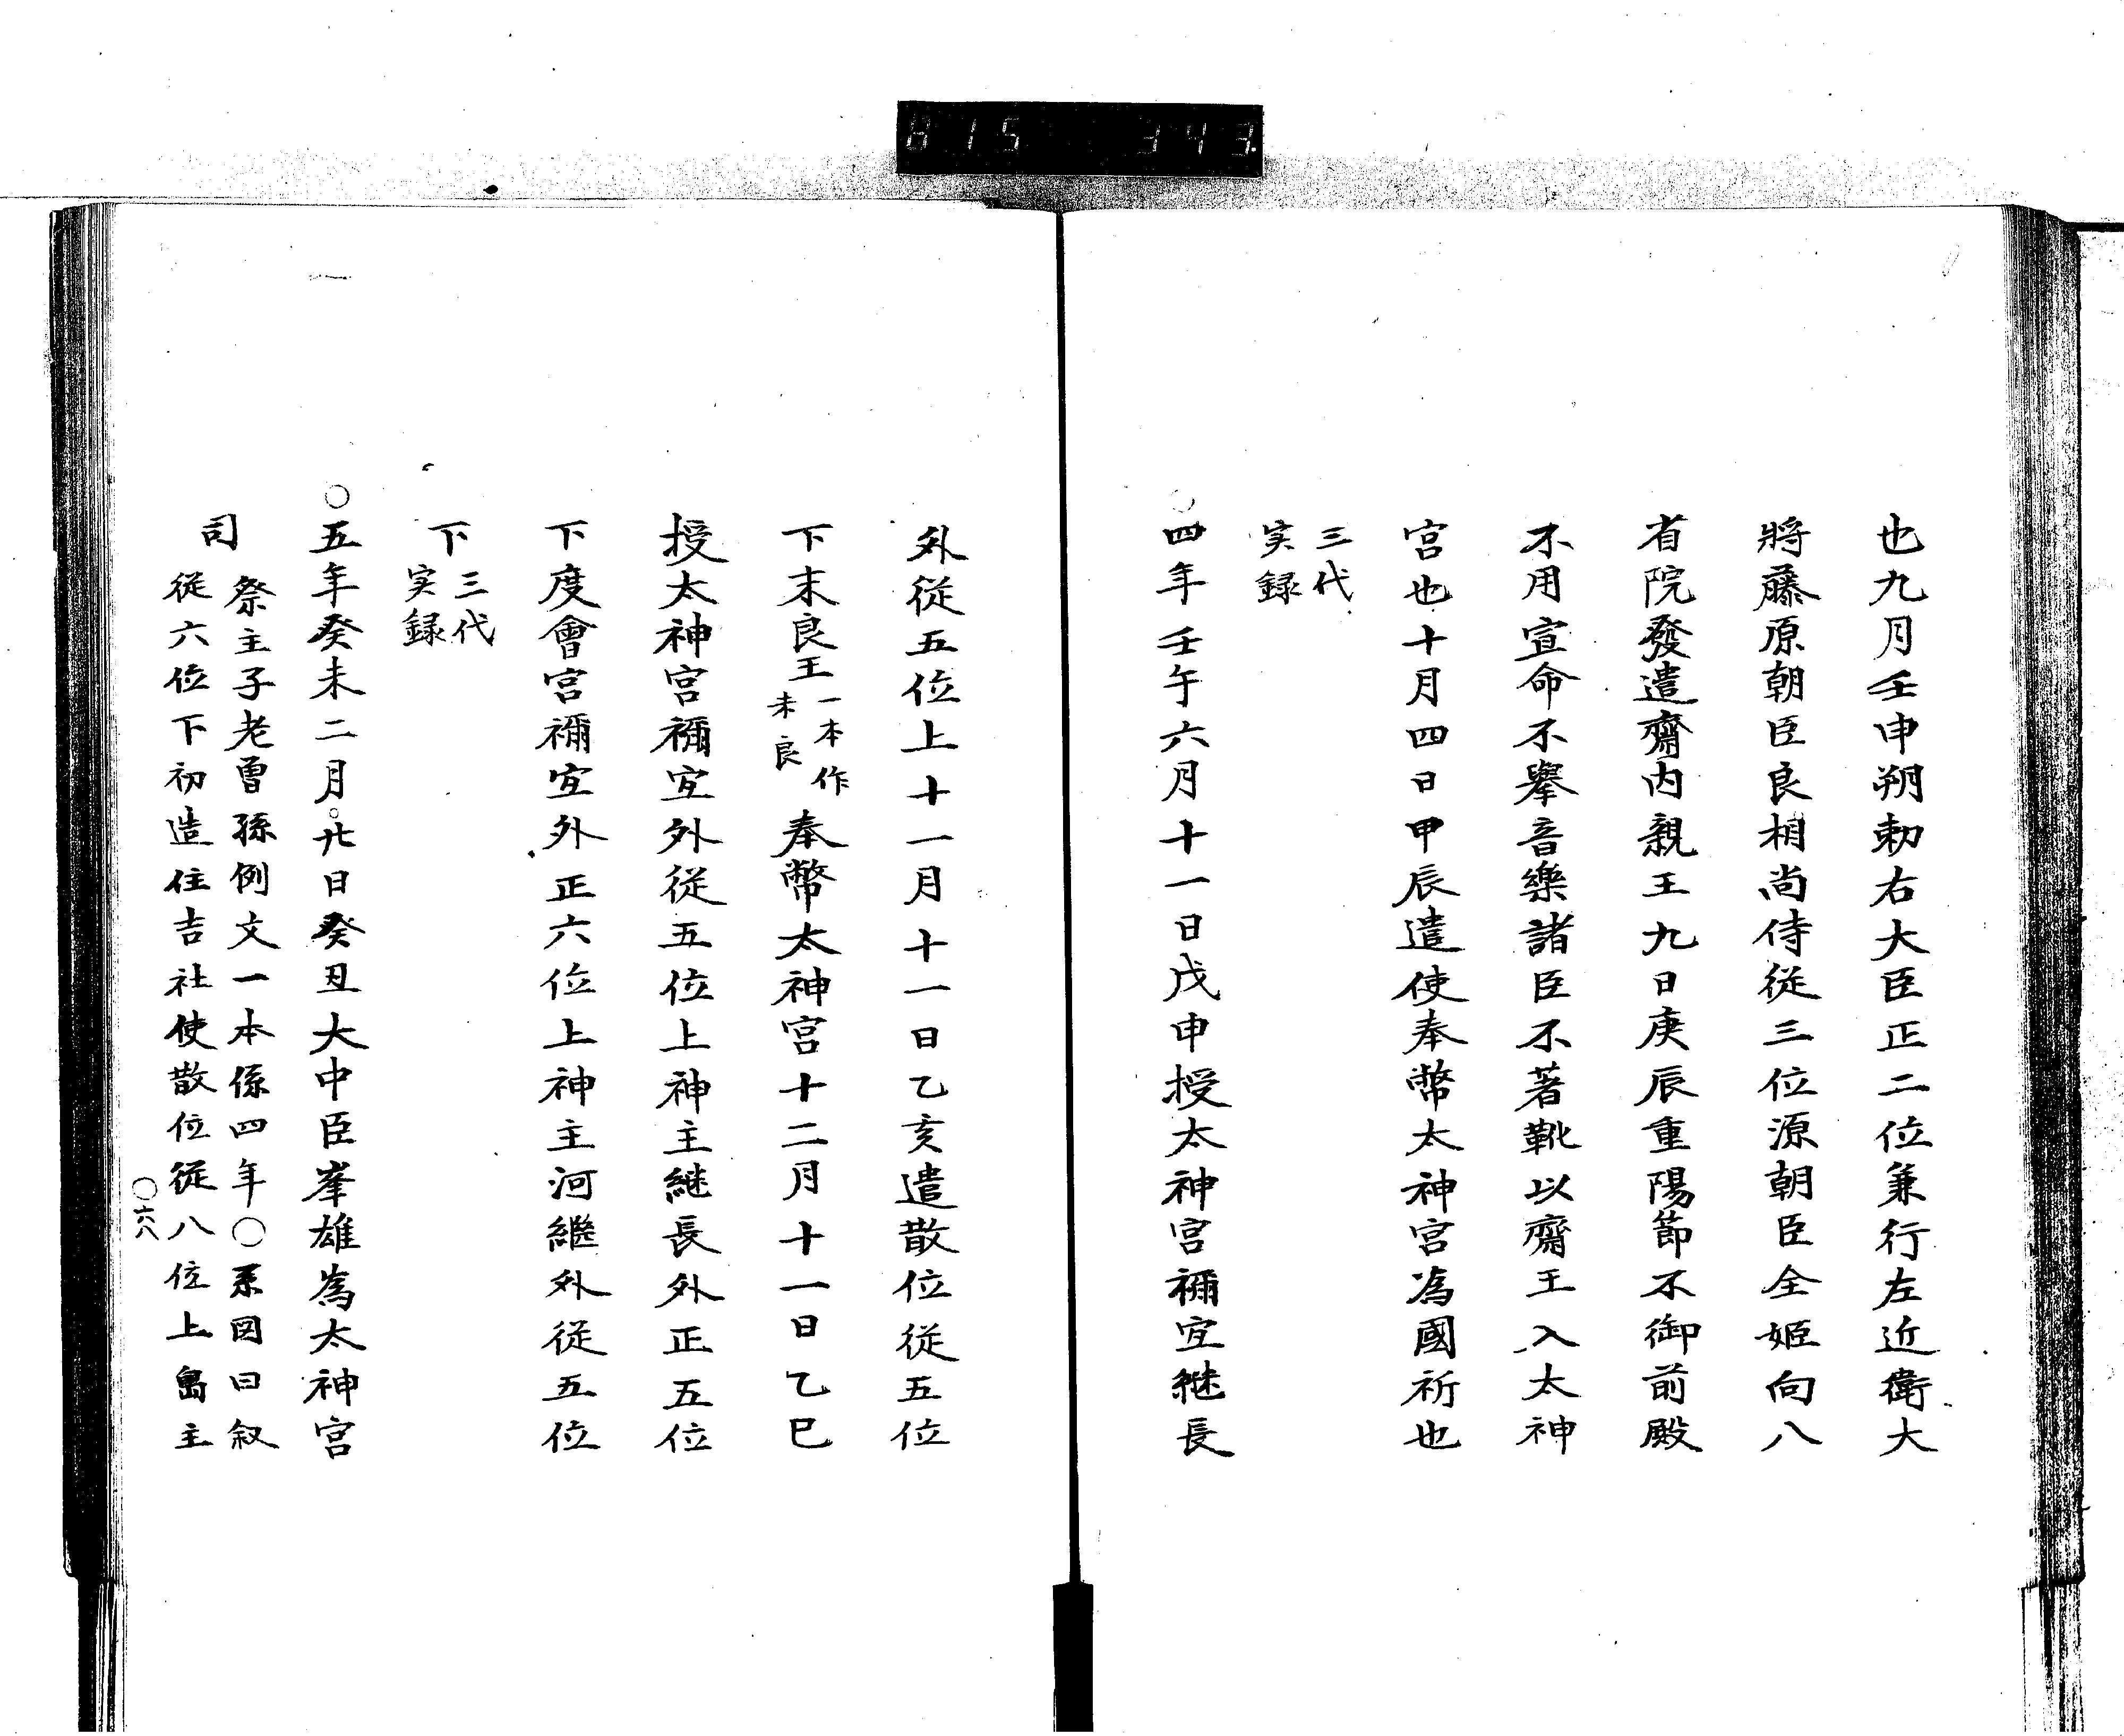 815 343.
也九月壬申朔勅右大臣正二位兼行左近衛大
將藤原朝臣良相尚侍從三位源朝臣全姬向八
省院發遣齋內親王九日庚辰重陽節不御前殿
不用宣命不擧音樂諸臣不著靴以齋王入太神
宮也十月四日甲辰遣使奉幣太神宮為國祈也
三代
实録
○四年壬午六月十一日戊申授太神宮禰宜継長
外從五位上十一月十一日乙亥遣散位從五位
下末良王一本作
未良奉幣太神宮十二月十一日乙巳
授太神宮禰宜外從五位上神主継長外正五位
下度會宮禰宜外正六位上神主河継外從五位
下三代
实録
○五年癸未二月。廿日癸丑大中臣峯雄為太神宮
司祭主子老曽孫例文一本係四年○系図曰叙
從六位下初造住吉社使散位從八位上島主
○六八